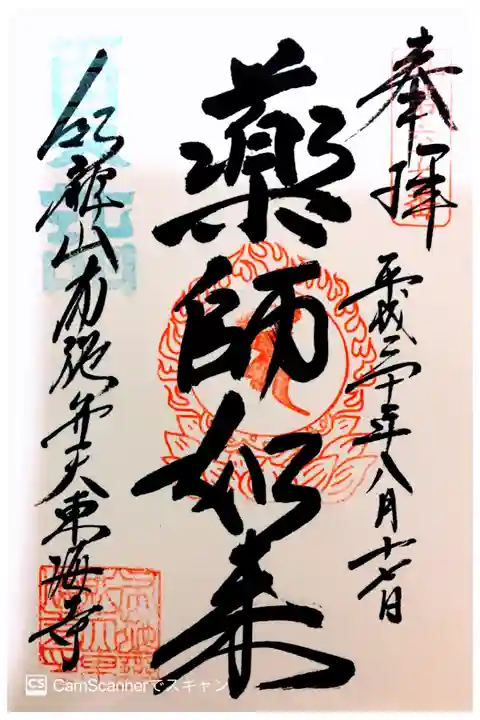 奉拝
平成三十年八月十七日
薬師如来
紅龍山布施弁天東海寺
CS CamScannerでスキャン